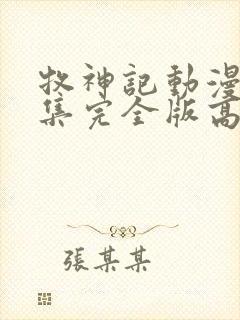 牧神記動漫
集完全版高
張某某